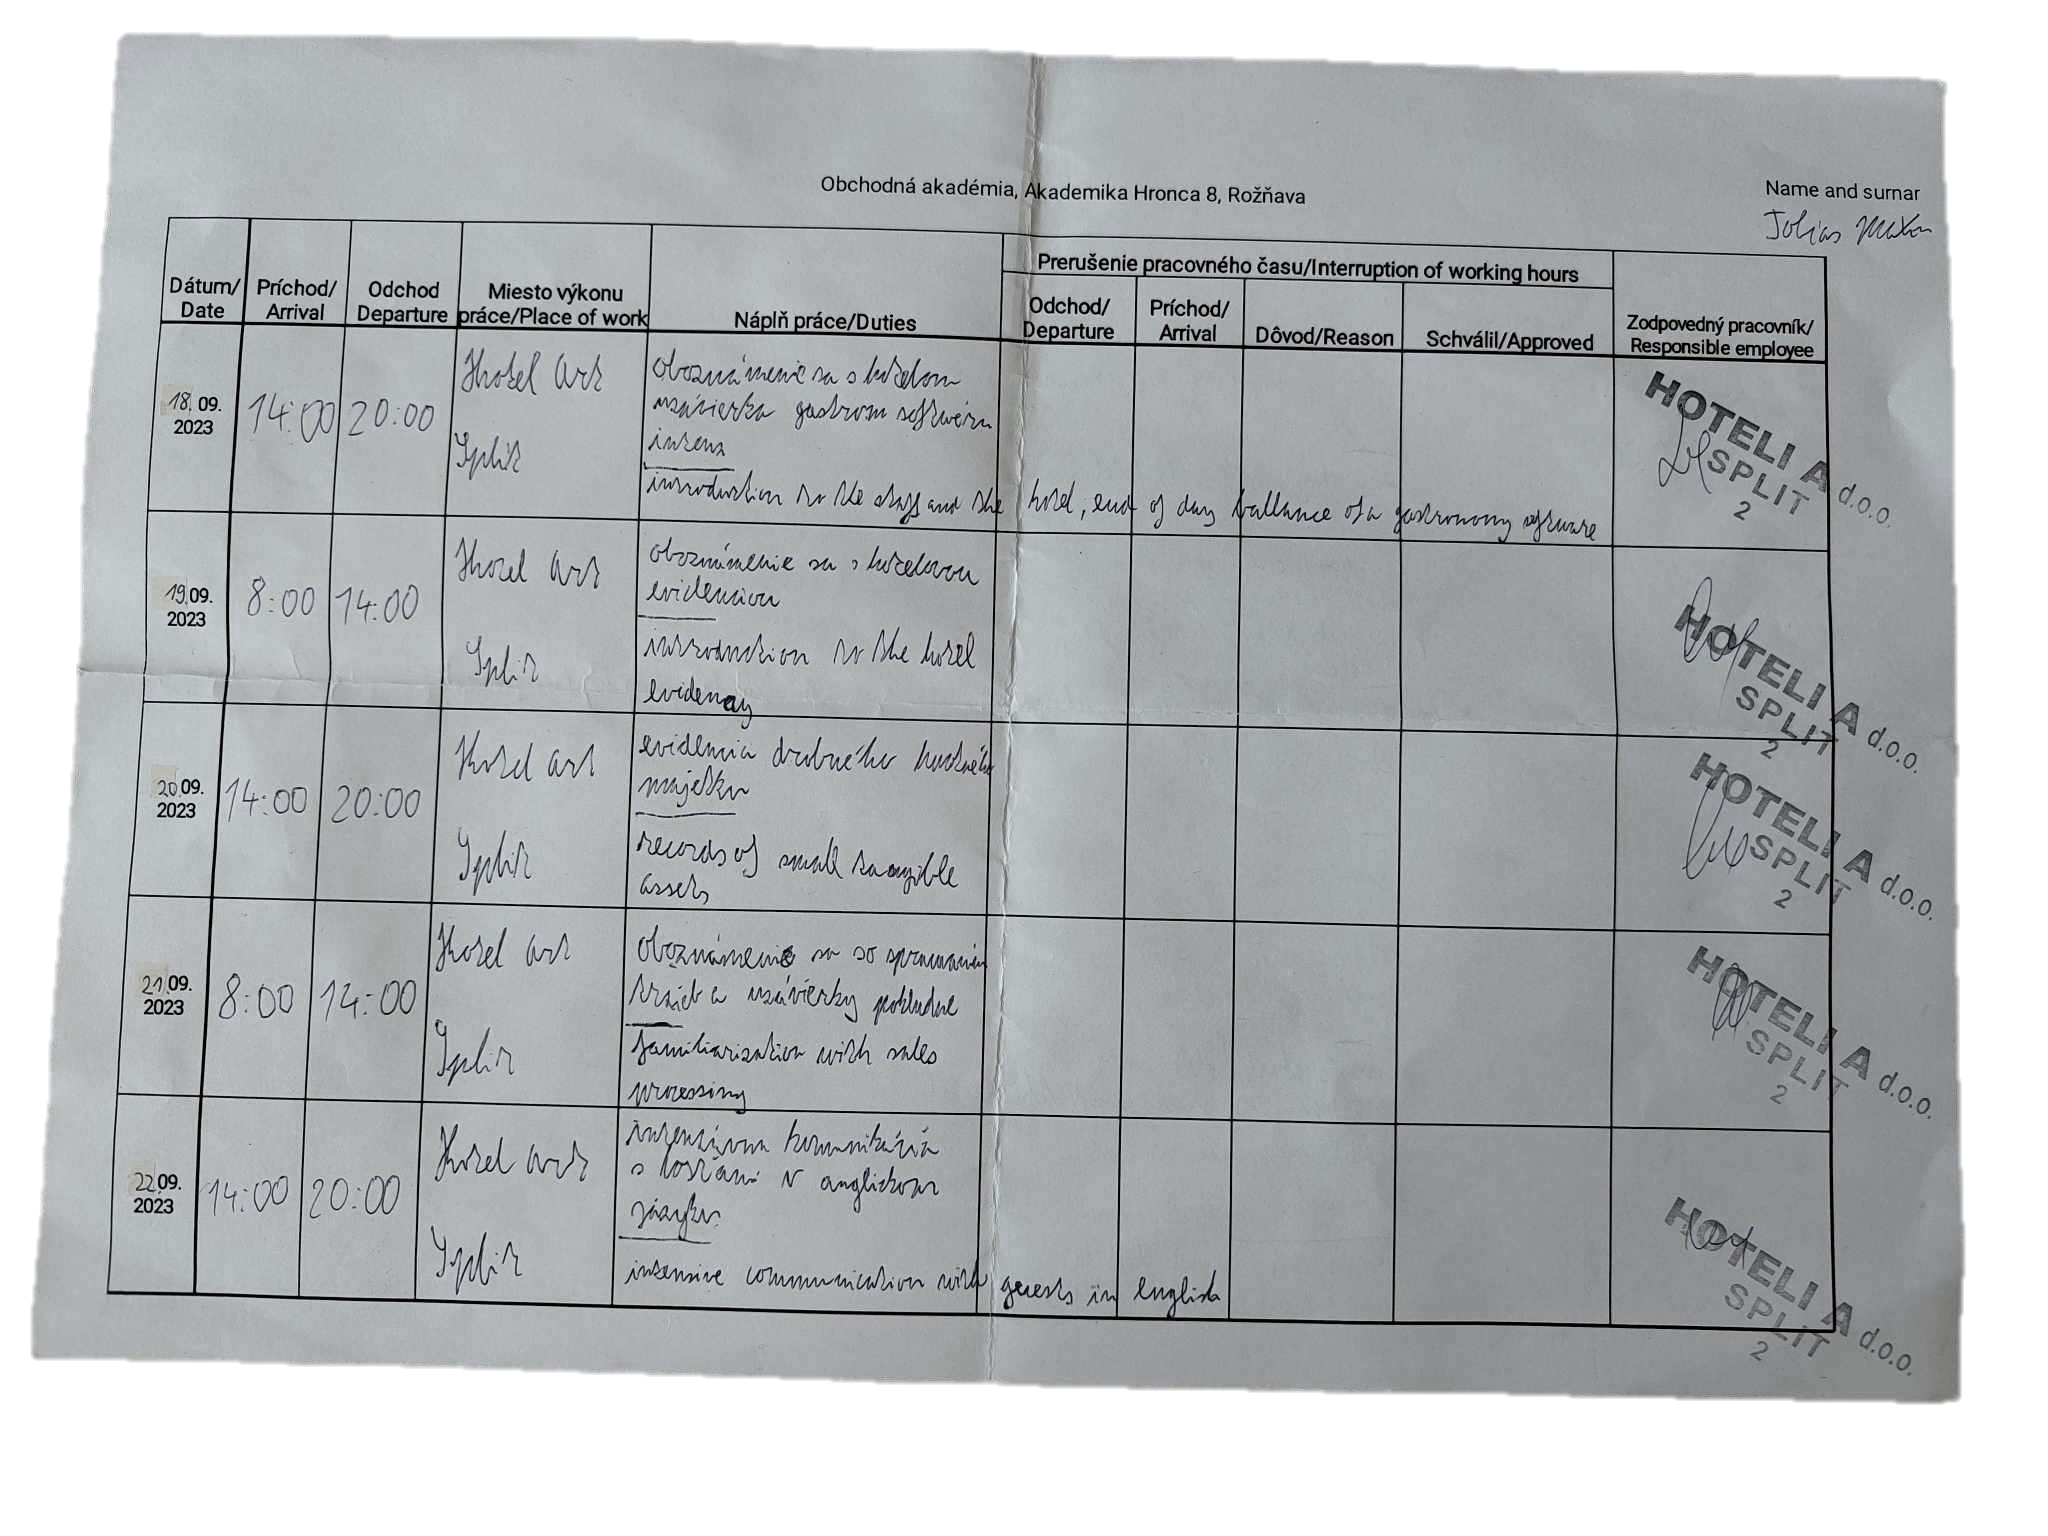 Obchodná akadémia, Akademika Hronca 8, Rožňava
Name and surnar
Tobias
Dátum/
Date
Príchod/
Arrival
Odchod
Departure
Miesto výkonu
práce/Place of work
Náplň práce/Duties
Prerušenie pracovného času/Interruption of working hours
Odchod/
Departure
Príchod/
Arrival
Dôvod/Reason
Schválil/Approved
Zodpovedný pracovník/
Responsible employee
18. 09.
2023
14:00
20:00
Hotel Art
Split
oboznámenie sa s hotelom
uzávierka gastrom softwéru
introduction to the staff and the hotel, end of day ballance of a gastronomy software
HOTELI A d.o.o.
SPLIT
2
19.09.
2023
8:00
14:00
Hotel Art
Split
oboznámenie sa s hotelovou
evidenciou
introduction to the hotel
HOTELI A d.o.o.
SPLIT
2
20.09.
2023
14:00
20:00
Hotel Art
Split
evidencia drobného hmotného
majetku
records of small tangible
assets
HOTELI A d.o.o.
SPLIT
2
21.09.
2023
8:00
14:00
Hotel Art
Split
oboznámenie sa so spracovaním
tržieb a uzávierky pokladne
familiarization with sales
processing
HOTELI A d.o.o.
SPLIT
2
22.09.
2023
14:00
20:00
Hotel Art
Split
intenzívna komunikácia
s hosťami v anglickom
jazyku
intensive communication with guests in english
HOTELI A d.o.o.
SPLIT
2